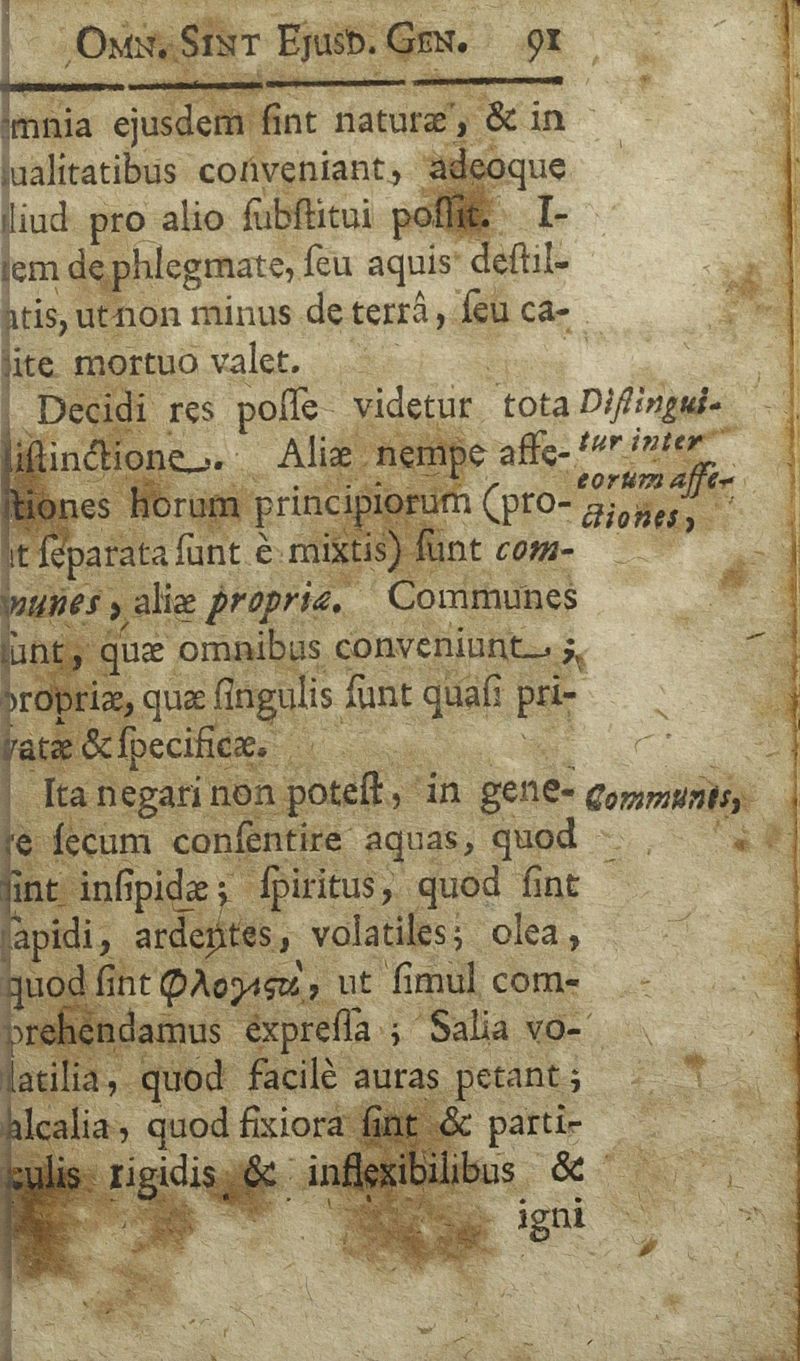 OMN. SINT EJUSD. GEN. 91
mnia ejusdem ſint naturæ, & in
ualitatibus conveniant, adeoque
liud pro alio ſubſtitui poſſit. I-
em de phlegmate, ſeu aquis deſtil-
atis, ut non minus de terrâ, ſeu ca-
ite mortuo valet.
Decidi res poſſe videtur tota
iſtinctione. Aliæ nempe affe-
tiones horum principiorum (pro-
ut ſeparata ſunt è mixtis) ſunt com-
munes, aliæ propriæ. Communes
ſunt, quæ omnibus conveniunt;
propriæ, quæ ſingulis ſunt quaſi pri-
vatæ & ſpecificæ.
Diſtingui-
tur inter
eorum affe-
ctiones,
Ita negari non poteſt, in gene-
re ſecum conſentire aquas, quod
ſint inſipidæ; ſpiritus, quod ſint
ſapidi, ardentes, volatiles; olea,
quod ſint φλογιϛὰ, ut ſimul com-
prehendamus expreſſa; Salia vo-
latilia, quod facilè auras petant;
alcalia, quod fixiora ſint & parti-
culis rigidis & inflexibilibus &
Communes,
igni